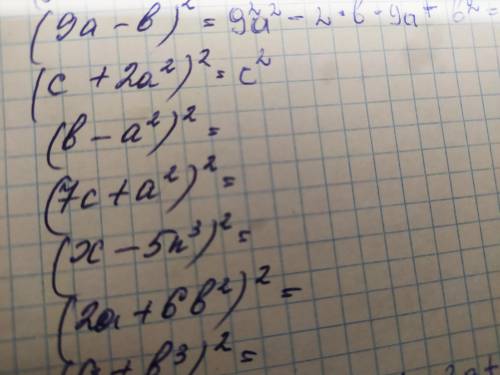 (9a - b)² = 9²a² - 2·b·9a + b² =
(c + 2a²)² = c²
(b - a²)² =
(7c + a²)² =
(x - 5n³)² =
(2a + 6b²)² =
+ b³)² =